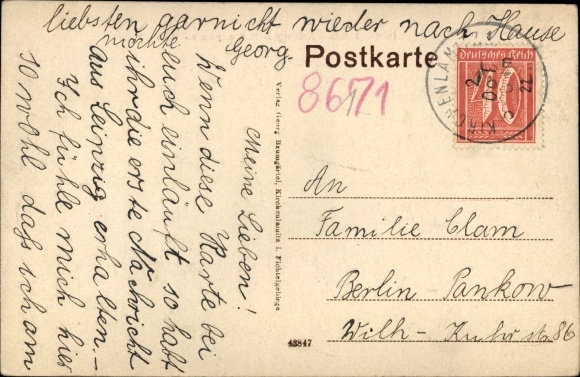 Postkarte
86171
Deutsches Reich
40
KIRCHENLAMITZ
An
Familie Clam
Berlin Pankow
Wilh - Kuhr str. 86
Verlag Georg Baumgärtel, Kirchenlamitz i. Fichtelgebirge
43847
Meine Lieben!
Wenn diese Karte bei
euch einläuft so habt
ihr die erste Nachricht
aus Leipzig erhalten. -
Ich fühle mich hier
so wohl dass ich am
liebsten garnicht wieder nach Hause
möchte. Georg.